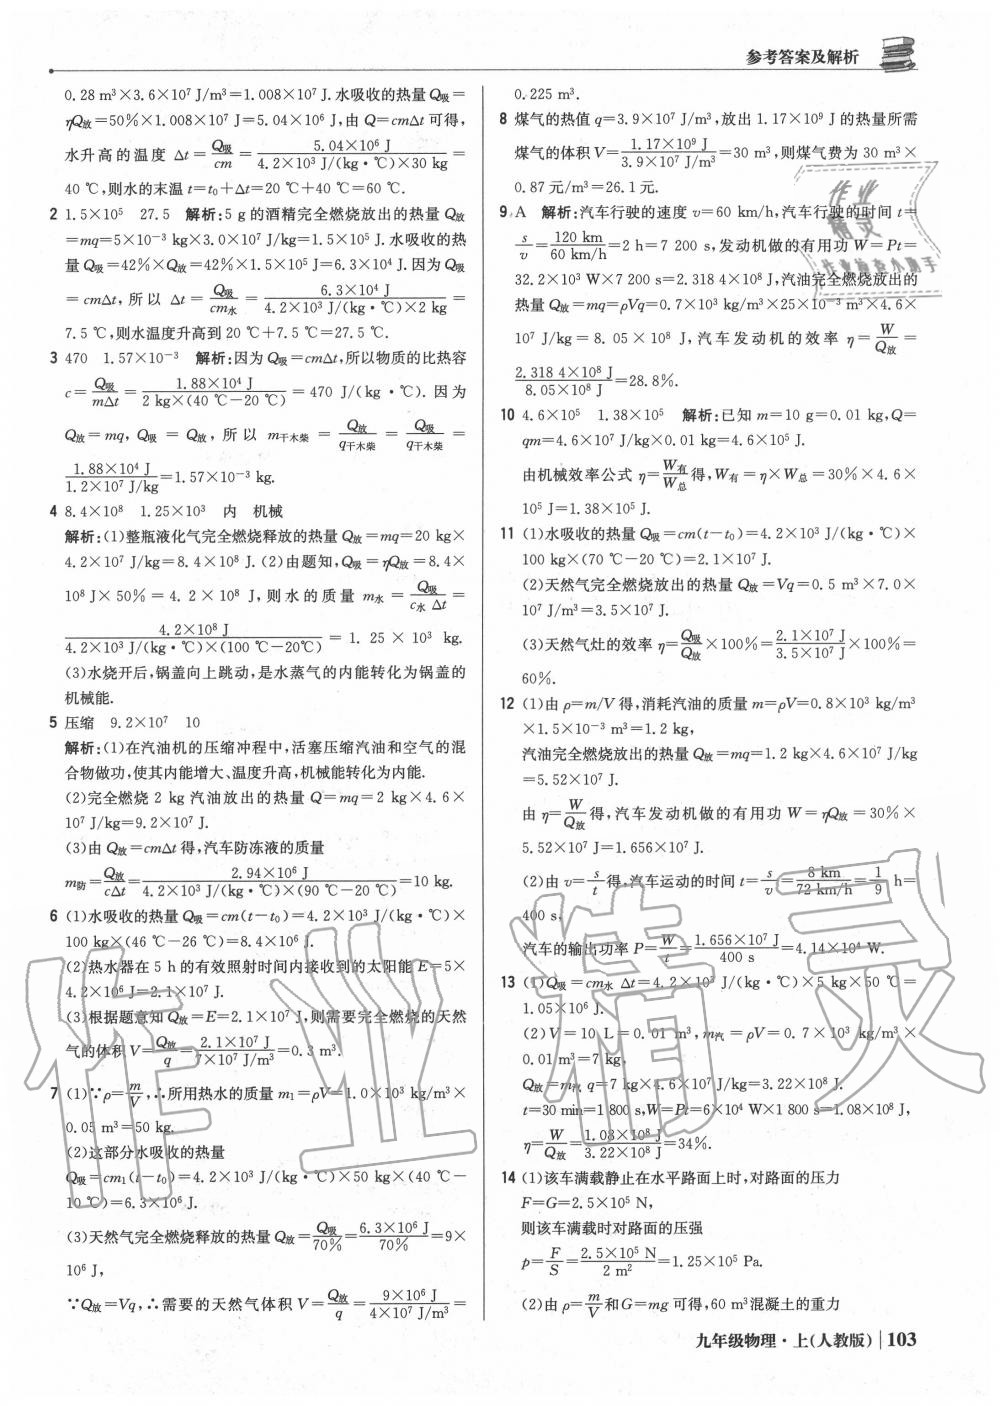 参考答案及解析
0.28 m³×3.6×10⁷ J/m³=1.008×10⁷ J.水吸收的热量Q吸=
ηQ放=50%×1.008×10⁷ J=5.04×10⁶ J,由 Q=cmΔt 可得,
水升高的温度 Δt=Q吸/cm=5.04×10⁶ J/4.2×10³ J/(kg·℃)×30 kg=
40 ℃,则水的末温 t=t₀+Δt=20 ℃+40 ℃=60 ℃.
2 1.5×10⁵ 27.5 解析:5 g的酒精完全燃烧放出的热量Q放
=mq=5×10⁻³ kg×3.0×10⁷ J/kg=1.5×10⁵ J.水吸收的热
量Q吸=42%×Q放=42%×1.5×10⁵ J=6.3×10⁴ J.因为Q吸
=cmΔt,所以 Δt=Q吸/cm水=6.3×10⁴ J/4.2×10³ J/(kg·℃)×2 kg=
7.5 ℃,则水温度升高到 20 ℃+7.5 ℃=27.5 ℃.
3 470 1.57×10⁻³ 解析:因为Q吸=cmΔt,所以物质的比热容
c=Q吸/mΔt=1.88×10⁴ J/2 kg×(40 ℃-20 ℃)=470 J/(kg·℃).因为
Q放=mq,Q吸=Q放,所以 m干木柴=Q放/q干木柴=Q吸/q干木柴=
1.88×10⁴ J/1.2×10⁷ J/kg=1.57×10⁻³ kg.
4 8.4×10⁸ 1.25×10³ 内 机械
解析:(1)整瓶液化气完全燃烧释放的热量Q放=mq=20 kg×
4.2×10⁷ J/kg=8.4×10⁸ J.(2)由题知,Q吸=ηQ放=8.4×
10⁸ J×50%=4.2×10⁸ J,则水的质量 m水=Q吸/c水 Δt=
4.2×10⁸ J/4.2×10³ J/(kg·℃)×(100 ℃-20℃)=1.25×10³ kg.
(3)水烧开后,锅盖向上跳动,是水蒸气的内能转化为锅盖的
机械能.
5 压缩 9.2×10⁷ 10
解析:(1)在汽油机的压缩冲程中,活塞压缩汽油和空气的混
合物做功,使其内能增大、温度升高,机械能转化为内能.
(2)完全燃烧 2 kg 汽油放出的热量 Q=mq=2 kg×4.6×
10⁷ J/kg=9.2×10⁷ J.
(3)由Q放=cmΔt得,汽车防冻液的质量
m防=Q放/cΔt=2.94×10⁶ J/4.2×10³ J/(kg·℃)×(90 ℃-20 ℃)=10 kg.
6 (1)水吸收的热量Q吸=cm(t-t₀)=4.2×10³ J/(kg·℃)×
100 kg×(46 ℃-26 ℃)=8.4×10⁶ J.
(2)热水器在 5 h的有效照射时间内接收到的太阳能E=5×
4.2×10⁶ J=2.1×10⁷ J.
(3)根据题意知Q放=E=2.1×10⁷ J,则需要完全燃烧的天然
气的体积 V=Q放/q=2.1×10⁷ J/7×10⁷ J/m³=0.3 m³.
7 (1)∵ρ=m/V,∴所用热水的质量 m₁=ρV=1.0×10³ kg/m³×
0.05 m³=50 kg.
(2)这部分水吸收的热量
Q吸=cm₁(t-t₀)=4.2×10³ J/(kg·℃)×50 kg×(40 ℃-
10 ℃)=6.3×10⁶ J.
(3)天然气完全燃烧释放的热量Q放=Q吸/70%=6.3×10⁶ J/70%=9×
10⁶ J,
∵Q放=Vq,∴需要的天然气体积 V=Q放/q=9×10⁶ J/4×10⁷ J/m³=
0.225 m³.
8 煤气的热值 q=3.9×10⁷ J/m³,放出 1.17×10⁹ J的热量所需
煤气的体积 V=1.17×10⁹ J/3.9×10⁷ J/m³=30 m³,则煤气费为 30 m³×
0.87 元/m³=26.1元.
9 A 解析:汽车行驶的速度 v=60 km/h,汽车行驶的时间 t=
s/v=120 km/60 km/h=2 h=7 200 s,发动机做的有用功 W=Pt=
32.2×10³ W×7 200 s=2.318 4×10⁸ J,汽油完全燃烧放出的
热量 Q放=mq=ρVq=0.7×10³ kg/m³×25×10⁻³ m³×4.6×
10⁷ J/kg=8.05×10⁸ J,汽车发动机的效率 η=W/Q放=
2.318 4×10⁸ J/8.05×10⁸ J=28.8%.
10 4.6×10⁵ 1.38×10⁵ 解析:已知 m=10 g=0.01 kg,Q=
qm=4.6×10⁷ J/kg×0.01 kg=4.6×10⁵ J.
由机械效率公式 η=W有/W总得,W有=η×W总=30%×4.6×
10⁵ J=1.38×10⁵ J.
11 (1)水吸收的热量Q吸=cm(t-t₀)=4.2×10³ J/(kg·℃)×
100 kg×(70 ℃-20 ℃)=2.1×10⁷ J.
(2)天然气完全燃烧放出的热量Q放=Vq=0.5 m³×7.0×
10⁷ J/m³=3.5×10⁷ J.
(3)天然气灶的效率 η=Q吸/Q放×100%=2.1×10⁷ J/3.5×10⁷ J×100%=
60%.
12 (1)由 ρ=m/V 得,消耗汽油的质量 m=ρV=0.8×10³ kg/m³
×1.5×10⁻³ m³=1.2 kg,
汽油完全燃烧放出的热量Q放=mq=1.2 kg×4.6×10⁷ J/kg
=5.52×10⁷ J.
由 η=W/Q放得,汽车发动机做的有用功 W=ηQ放=30%×
5.52×10⁷ J=1.656×10⁷ J.
(2)由 v=s/t得,汽车运动的时间 t=s/v=8 km/72 km/h=1/9 h=
400 s,
汽车的输出功率 P=W/t=1.656×10⁷ J/400 s=4.14×10⁴ W.
13 (1)Q吸=cm水 Δt=4.2×10³ J/(kg·℃)×5 kg×50 ℃=
1.05×10⁶ J.
(2)V=10 L=0.01 m³,m汽=ρV=0.7×10³ kg/m³×
0.01 m³=7 kg,
Q放=m汽 q=7 kg×4.6×10⁷ J/kg=3.22×10⁸ J.
t=30 min=1 800 s,W=Pt=6×10⁴ W×1 800 s=1.08×10⁸ J,
η=W/Q放=1.08×10⁸ J/3.22×10⁸ J=34%.
14 (1)该车满载静止在水平路面上时,对路面的压力
F=G=2.5×10⁵ N,
则该车满载时对路面的压强
p=F/S=2.5×10⁵ N/2 m²=1.25×10⁵ Pa.
(2)由 ρ=m/V和G=mg 可得,60 m³混凝土的重力
九年级物理·上(人教版) 103
作业
精灵
作业检查小助手
作业精灵